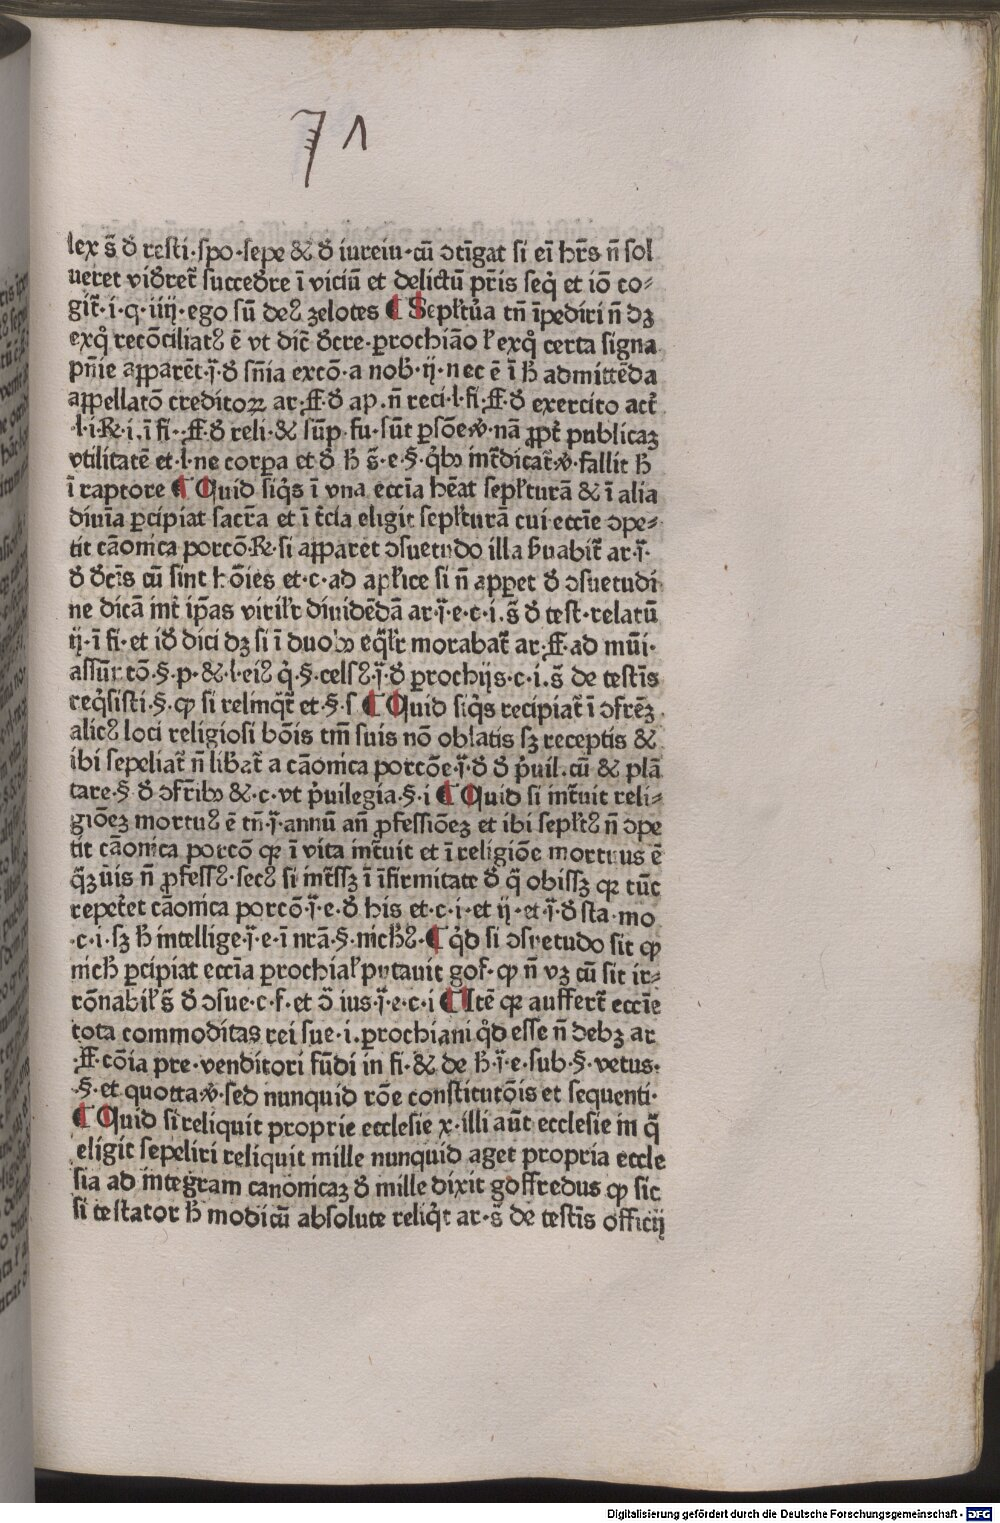 71
lex s̄ đ resti·spo·sepe & đ iureiu·cū ↄtīgat si eī hr̄s n̄ sol
ueret viđret̄ succeđre ī viciū et delictū pr̄is seq̄ et iō co⸗
git̄·i·q·iiij·ego sū deꝰ zelotes ¶ Sepłtu̾a tn̄ īpediri n̄ ꝺꝫ
exq̊ recōciliatꝰ ē vt dic̄ đcre·ꝑochiāo ł exq̊ certa signa
pn̄ie apparēt·j̄·đ sn̄ia excō·a nob̵·ij·nec ē ī h̵ admittēda
appellatō creditoꝝ ar·ff·đ ap·n̄ reci·l·fi·ff·đ exercito act̄
·l·i·℞·i·ī fi·ff·đ reli·& sūp·fu·sūt ꝑsōe·ꝟ·nā ꝓpt̄ publicaꝫ
vtilitatē et·l·ne corꝑa et đ h̵ s̄·e·§·q̇bꝰ int̄dicat̄·ꝟ·fallit h̵
ī raptore ¶ Quid siq̇s ī vna eccīa hēat sepłturā & ī alia
diuīa ꝑcipiat sacr̄a et ī t̄cīa eligit sepłturā cui eccīe ↄpe⸗
tit cāonica porcō·℞·si apparet ↄsuetudo illa ẜuabit̄ ar·j̄·
đ đcīs cū sint hōies et·c·ad apłice si n̄ apꝑet đ ↄsuetudi
ne dicā int̄ ip̄as viriłr diuidēdā ar·j̄·e·c·i·s̄ đ test·relatū
ij·ī fi·et iđ dici ꝺꝫ si ī duobꝰ eq̄łr morabat̄ ar·ff·ad mūi·
assūr tō·§·p·&·l·eiꝰ q̇·§·celsꝰ·j̄·đ ꝑochijs·c·i·s̄ de testīs
req̇sisti·§·ꝙ si relinq̄t̄ et·§·s ¶ Quid siq̇s recipiat̄ ī ↄfrēꝫ
alicꝰ loci religiosi bōis tm̄ suis nō oblatis sꝫ receptis &
ibi sepeliat̄ n̄ lib̄at̄ a cāonica porcōe·j̄·đ đ p̓uil·cū & plā
tare·§ đ ↄfr̄ibꝰ &·c·vt p̓uilegia·§·i ¶ Quid si int̄uit reli⸗
giōeꝫ mortuꝰ ē tn̄·j̄·annū an̄ ꝓfessiōeꝫ et ibi sepłtꝰ n̄ ↄpe
tit cāonica porcō qꝛ ī vita int̄uit et ī religiōe mortuus ē
q̄ꝫuis n̄ ꝓfessꝰ·secꝰ si int̄ssꝫ ī īfirmitate đ q̄ obissꝫ qꝛ tūc
repet̄et cāonica porcō·j̄·e·đ his et·c·i·et ij·et·j̄·đ sta·mo
·c·i·sꝫ h̵ intellige·j̄·e·ī nr̄ā·§·nich̵ꝰ·¶ q̇d si ↄsuetudo sit ꝙ
nich̵ ꝑcipiat eccīa ꝑochiał putauit gof·ꝙ n̄ vꝫ cū sit ir⸗
rōnabił s̄ đ ↄsue·c·f·et ↄ̄ ius·j̄·e·c·i ¶ Itē qꝛ auffert̄ eccīe
tota commoditas rei sue·i·ꝑrochiani q̇d esse n̄ debꝫ ar
·ff·cōia pre·venditori fūdi in fi·& de h̵·j̄·e·sub·§·vetus·
·§·et quotta·ꝟ·sed nunquid rōe constitutōis et sequenti·
¶ Quid si reliquit proprie ecclesie x·illi aūt ecclesie in q̄
eligit sepeliri reliquit mille nunquid aget propria eccle
sia ad integram canonicaꝫ đ mille dixit goffredus ꝙ sic
si testator h̵ modicū absolute reliq̇t ar·s̄ de testīs officij
Digitalisierung gefördert durch die Deutsche Forschungsgemeinschaft - DFG